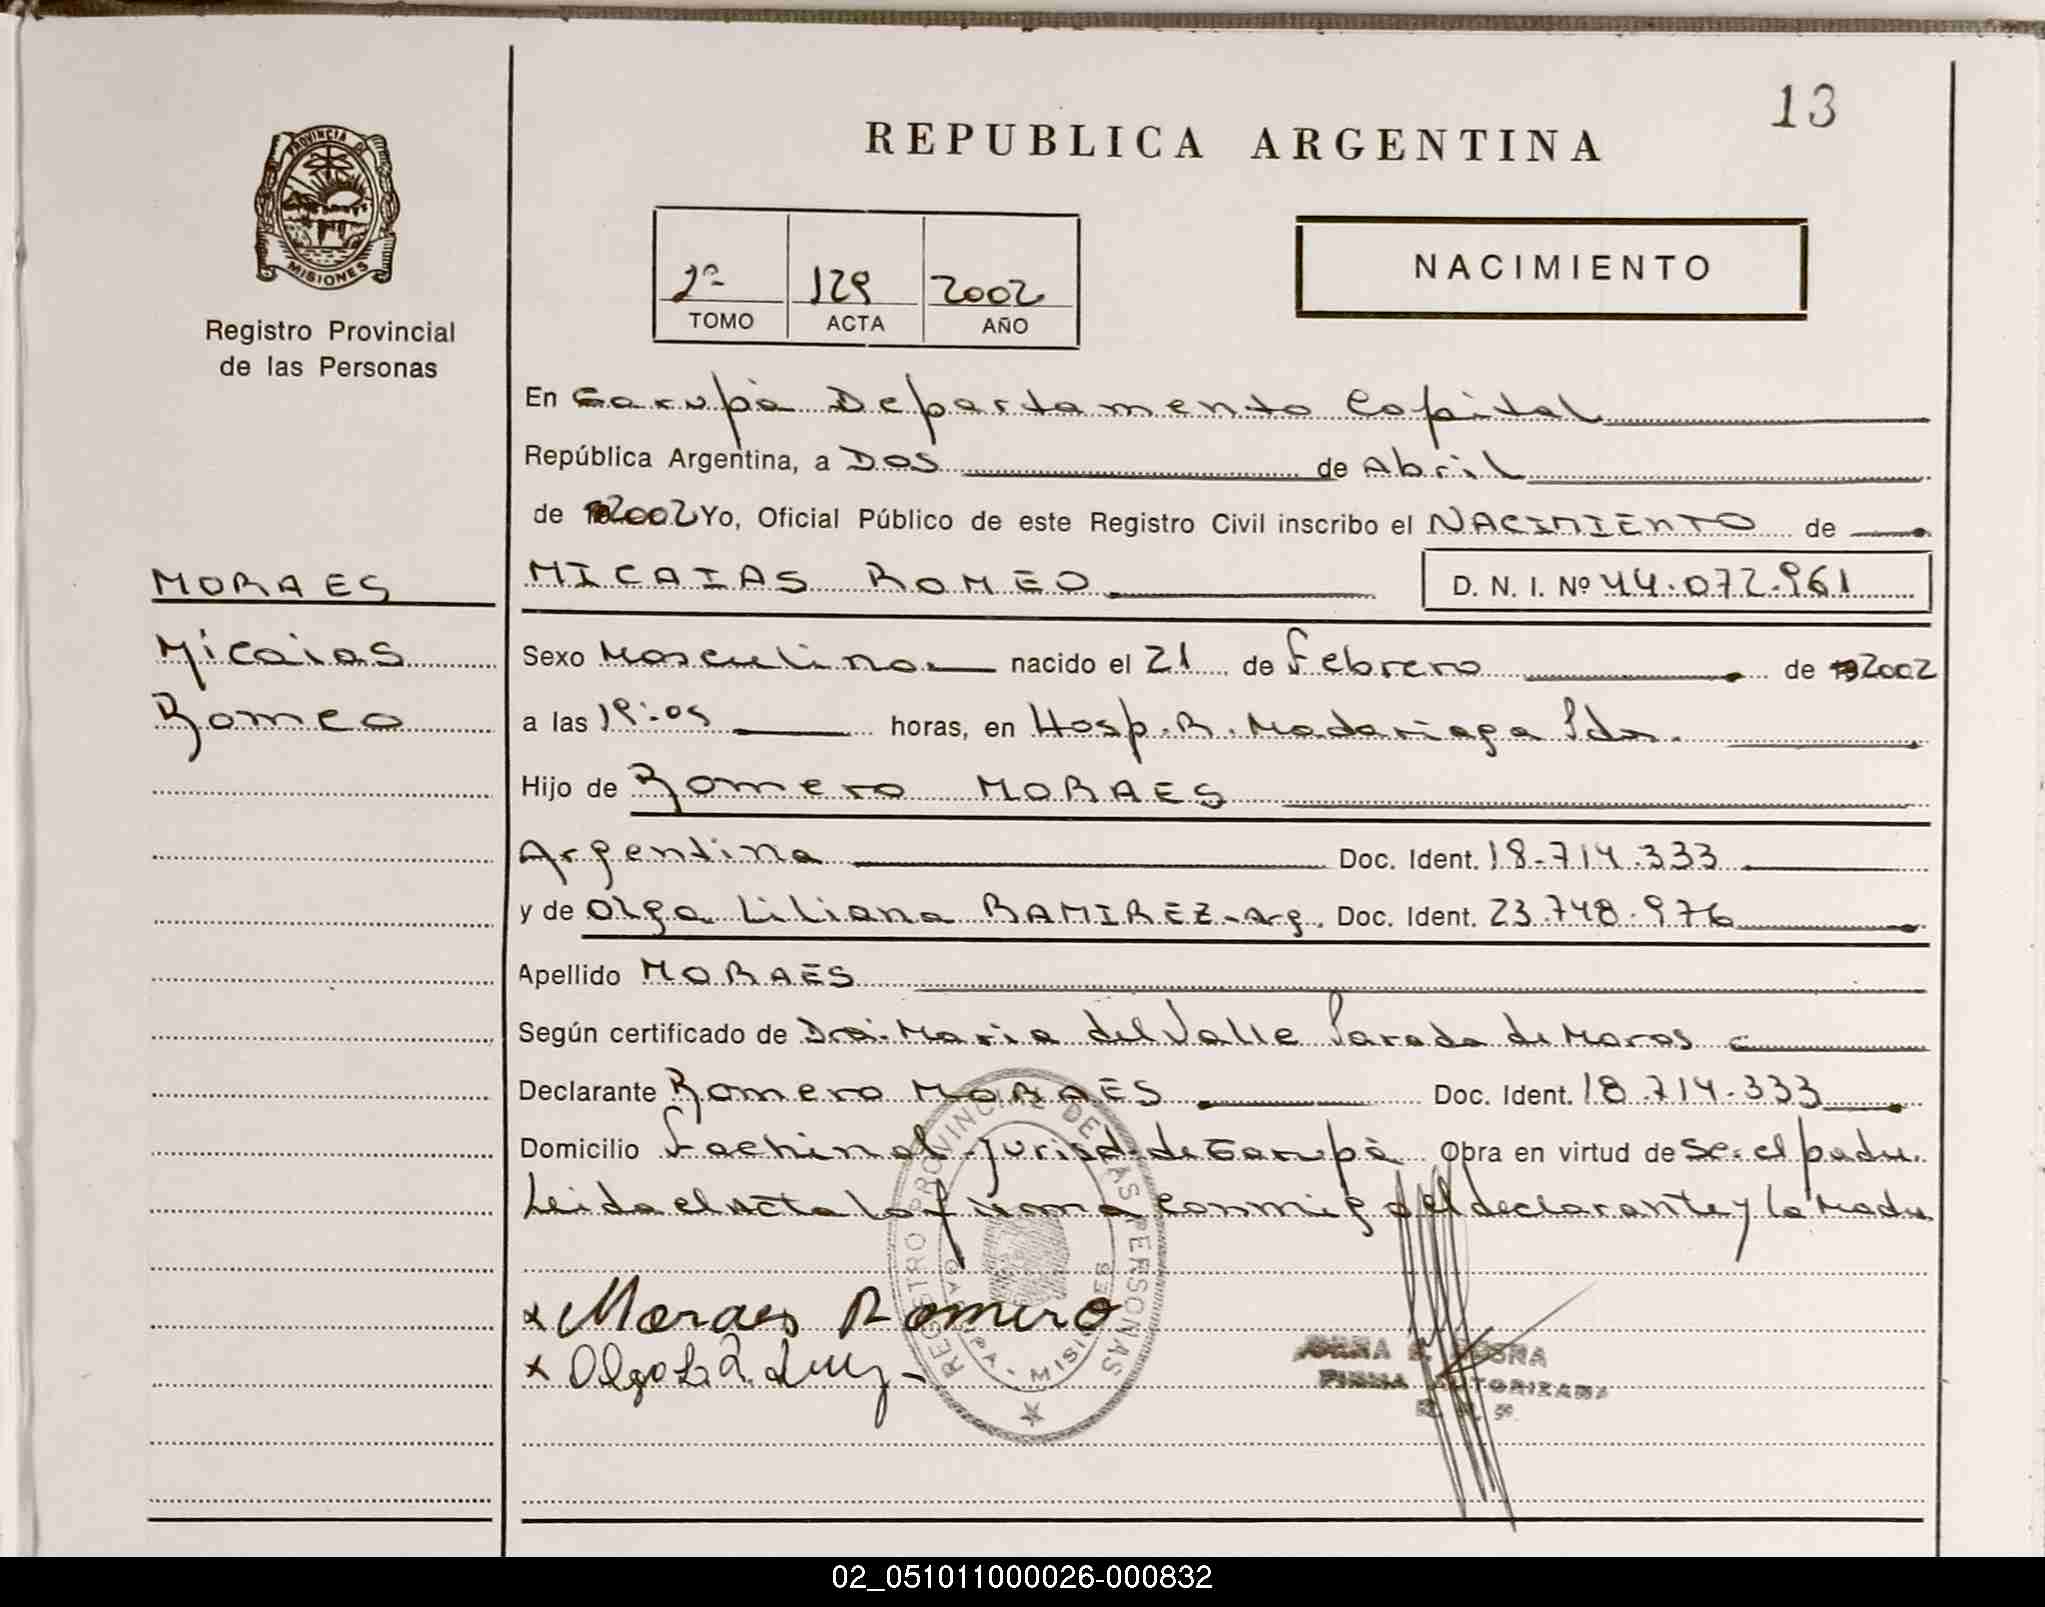 13
REPUBLICA ARGENTINA
PROVINCIA DE
MISIONES
Registro Provincial
de las Personas
2º 129 2002
TOMO ACTA AÑO
NACIMIENTO
En Garupá Departamento Capital
República Argentina, a Dos de Abril
de 2002 Yo, Oficial Público de este Registro Civil inscribo el NACIMIENTO de
MORAES
MICAIAS ROMEO D. N. I. Nº 44.072.961
Micaias
Sexo Masculino nacido el 21 de Febrero de 2002
Romeo
a las 19:05 horas, en Hosp. R. Madariaga Pdas.
Hijo de Romero MORAES
Argentina Doc. Ident. 18.714.333
y de Olga Liliana RAMIREZ - Arg. Doc. Ident. 23.748.976
Apellido MORAES
Según certificado de Dra. Maria del Valle Parada de Maros
Declarante Romero MORAES Doc. Ident. 18.714.333
Domicilio Fachinal - Jurisd. de Garupá Obra en virtud de Ser el padre.
Leida el Acta la firma conmigo el declarante y la Madre
REGISTRO PROVINCIAL DE LAS PERSONAS
MISIONES
x Moraes Romero
x Olga L. R.
FIRMA AUTORIZADA
R. P. P.
02_051011000026-000832